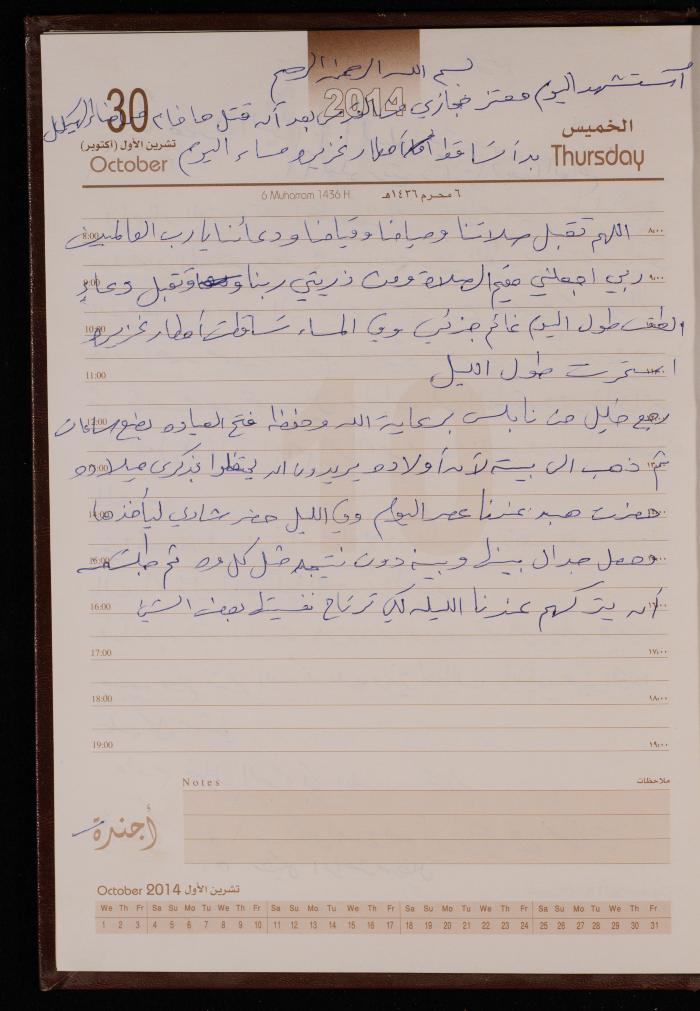 بسم الله الرحمن الرحيم
أستشهد اليوم معتز حجازي من القدس بعد أن قتل حاخام
30
2014
الخميس
تشرين الأول (أكتوبر)
October
Thursday
بدأ تساقط أمطار غزيره مساء اليوم
6 Muharram 1436 H.
٦ محرم ١٤٣٦هـ
8:00 اللهم تقبل صلاتنا وصيامنا وقيامنا ودعائنا يا رب العالمين ٨:٠٠
9:00 ربي اجعلني مقيم الصلاة ومن ذريتي ربنا وتقبل دعاء ٩:٠٠
10:00 الطقس طول اليوم غائم جزئي وفي المساء تساقطت أمطار غزيره
11:00 استمرت طول الليل
12:00 رجع خليل من نابلس برعاية الله وحفظه فتح العياده بضع ساعات
ثم ذهب الى بيته لأن أولاده يريدون ان يحتفلوا بذكرى ميلاده
14:00 حضرت هبه عندنا عصر اليوم وفي الليل حضر شادي ليأخذها
15:00 وحصل جدال بينها وبينه دون نتيجه مثل كل مره ثم طلبت منه
16:00 أن يتركهم عندنا الليله لكي ترتاح نفسيتها بعض الشيئ
17:00 ١٧:٠٠
18:00 ١٨:٠٠
19:00 ١٩:٠٠
Notes
ملاحظات
أجندة
October 2014 تشرين الأول
We Th Fr Sa Su Mo Tu We Th Fr Sa Su Mo Tu We Th Fr Sa Su Mo Tu We Th Fr Sa Su Mo Tu We Th Fr
1 2 3 4 5 6 7 8 9 10 11 12 13 14 15 16 17 18 19 20 21 22 23 24 25 26 27 28 29 30 31